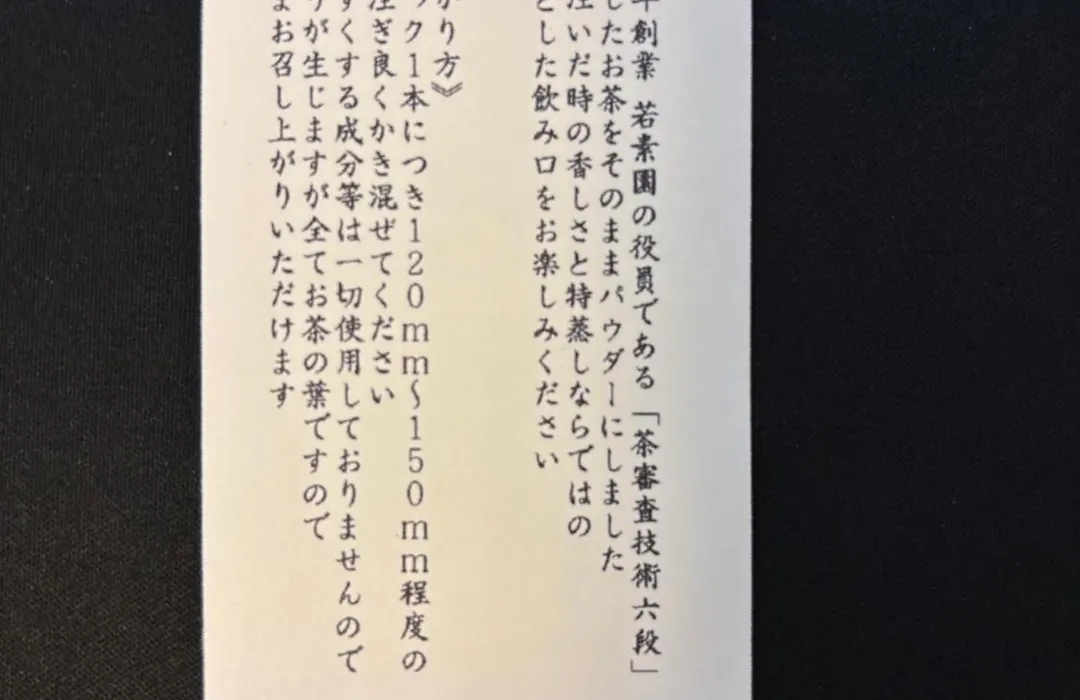 年創業 若素園の役員である「茶審査技術六段」
したお茶をそのままパウダーにしました
注いだ時の香しさと特蒸しならではの
とした飲み口をお楽しみください
がり方》
ック1本につき120mm〜150mm程度の
注ぎ良くかき混ぜてください
すくする成分等は一切使用しておりませんので
りが生じますが全てお茶の葉ですので
まお召し上がりいただけます